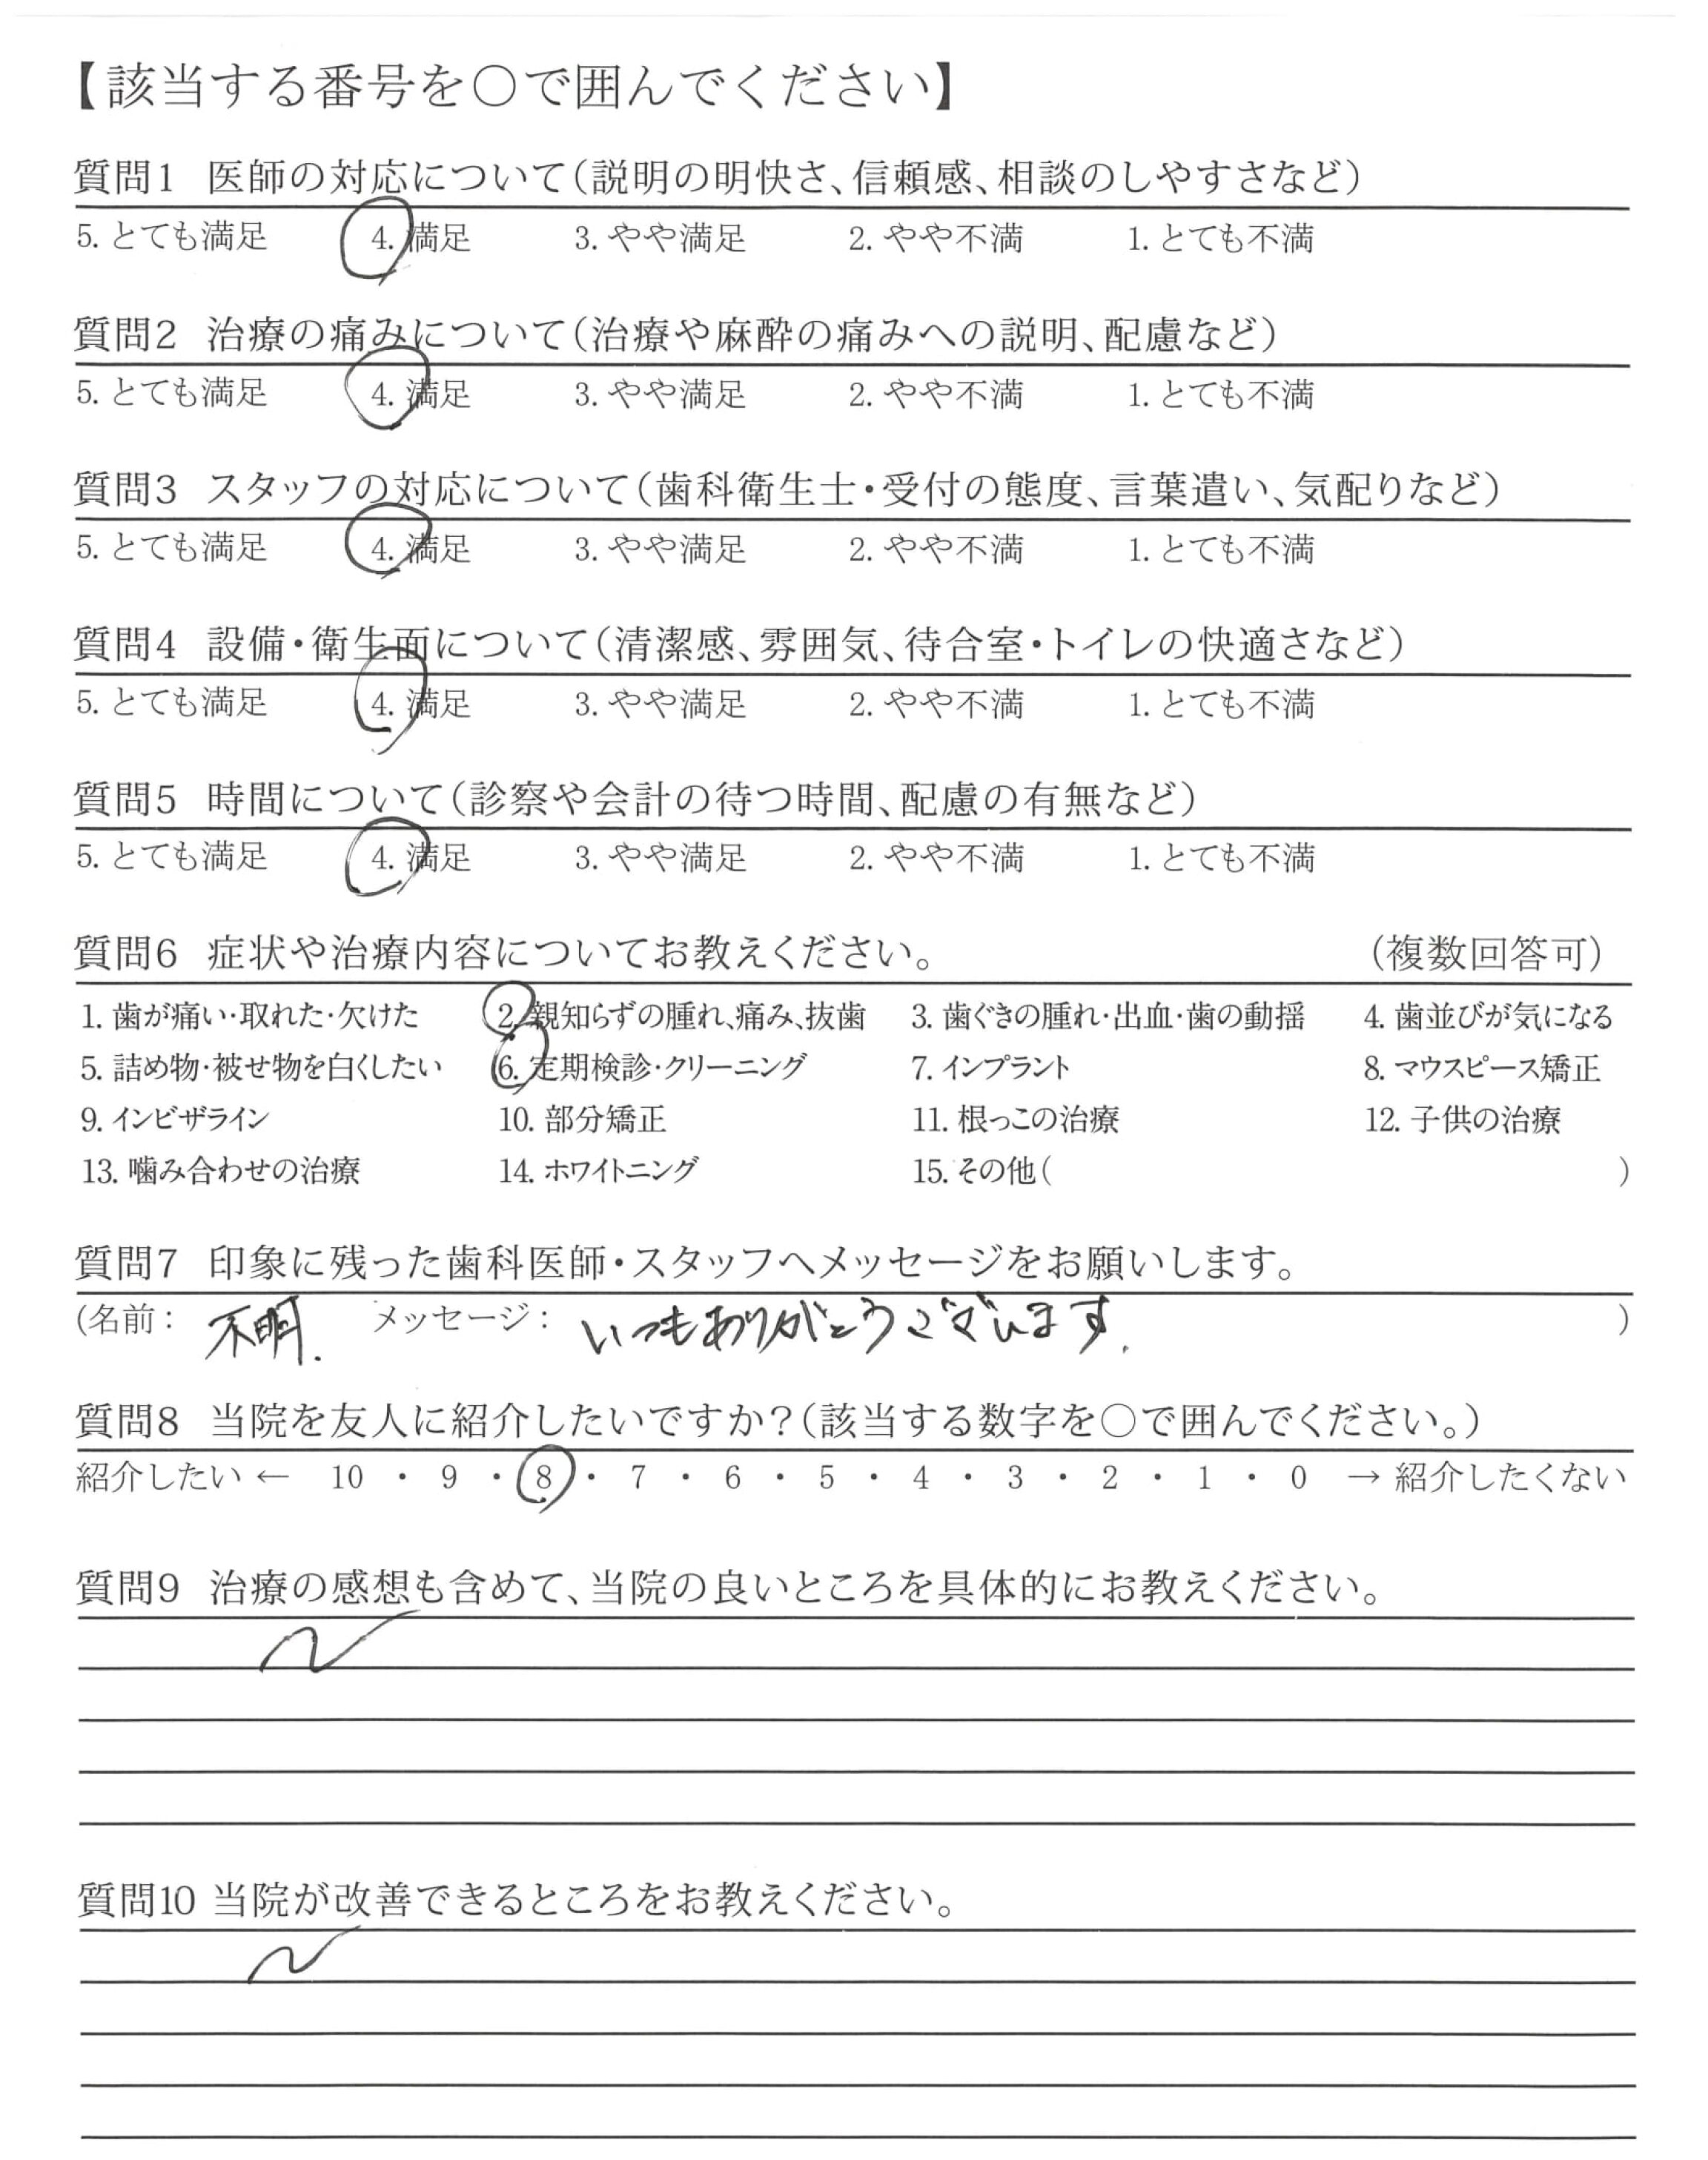 【該当する番号を〇で囲んでください】
質問1 医師の対応について(説明の明快さ、信頼感、相談のしやすさなど)
5. とても満足 4. 満足 3. やや満足 2. やや不満 1. とても不満
質問2 治療の痛みについて(治療や麻酔の痛みへの説明、配慮など)
5. とても満足 4. 満足 3. やや満足 2. やや不満 1. とても不満
質問3 スタッフの対応について(歯科衛生士・受付の態度、言葉遣い、気配りなど)
5. とても満足 4. 満足 3. やや満足 2. やや不満 1. とても不満
質問4 設備・衛生面について(清潔感、雰囲気、待合室・トイレの快適さなど)
5. とても満足 4. 満足 3. やや満足 2. やや不満 1. とても不満
質問5 時間について(診察や会計の待つ時間、配慮の有無など)
5. とても満足 4. 満足 3. やや満足 2. やや不満 1. とても不満
質問6 症状や治療内容についてお教えください。 (複数回答可)
1. 歯が痛い・取れた・欠けた 2. 親知らずの腫れ、痛み、抜歯 3. 歯ぐきの腫れ・出血・歯の動揺 4. 歯並びが気になる
5. 詰め物・被せ物を白くしたい 6. 定期検診・クリーニング 7. インプラント 8. マウスピース矯正
9. インビザライン 10. 部分矯正 11. 根っこの治療 12. 子供の治療
13. 噛み合わせの治療 14. ホワイトニング 15. その他( )
質問7 印象に残った歯科医師・スタッフへメッセージをお願いします。
(名前: 不明. メッセージ: いつもありがとうございます. )
質問8 当院を友人に紹介したいですか?(該当する数字を〇で囲んでください。)
紹介したい ← 10 ・ 9 ・ 8 ・ 7 ・ 6 ・ 5 ・ 4 ・ 3 ・ 2 ・ 1 ・ 0 → 紹介したくない
質問9 治療の感想も含めて、当院の良いところを具体的にお教えください。
質問10 当院が改善できるところをお教えください。